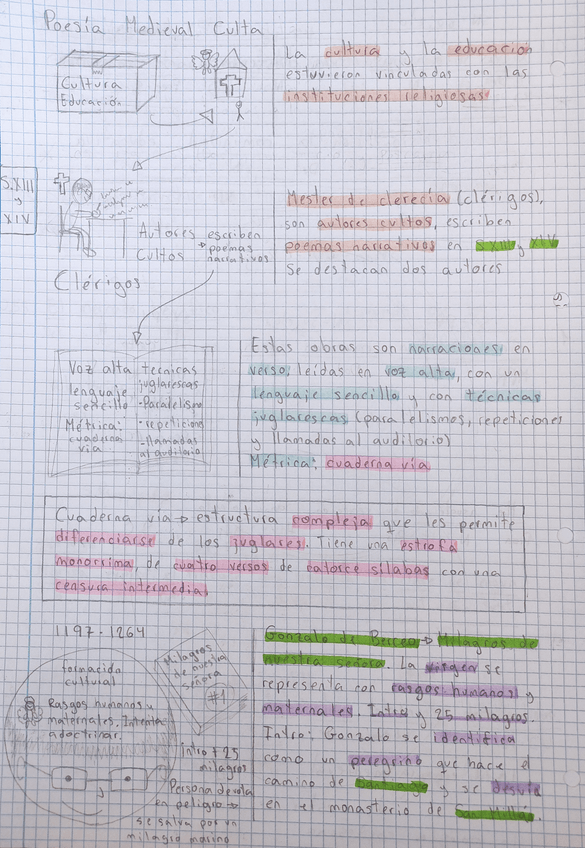 Poesía Medieval Culta
Cultura
Educación
La cultura y la educación
estuvieron vinculadas con las
instituciones religiosas
S.XIII
y
XIV
Autores escriben
Cultos → poemas
narrativos
Clérigos
Mester de clerecía (clérigos),
son autores cultos, escriben
poemas narrativos en S.XIII y XIV
Se destacan dos autores
Voz alta
lenguaje
sencillo
Métrica:
cuaderna
vía
tecnicas
juglarescas
-Paralelismo
-repeticiones
-llamadas
al auditorio
Estas obras son narraciones en
verso, leídas en voz alta, con un
lenguaje sencillo y con técnicas
juglarescas (paralelismos, repeticiones
y llamadas al auditorio)
Métrica: cuaderna vía
Cuaderna vía → estructura compleja que les permite
diferenciarse de los juglares. Tiene una estrofa
monorrima, de cuatro versos de catorce sílabas con una
censura intermedia.
1197-1264
formación
cultural
Rasgos humanos y
maternales. Intenta
adoctrinar.
Milagros
de nuestra
señora
#1
Intro + 25
milagros
Persona devota
en peligro →
se salva por un
milagro mariano
Gonzalo de Berceo → Milagros de
nuestra señora. La virgen se
representa con rasgos humanos y
maternales. Intro y 25 milagros.
Intro: Gonzalo se identifica
como un peregrino que hace el
camino de Santiago y se desvía
en el monasterio de San Millán.